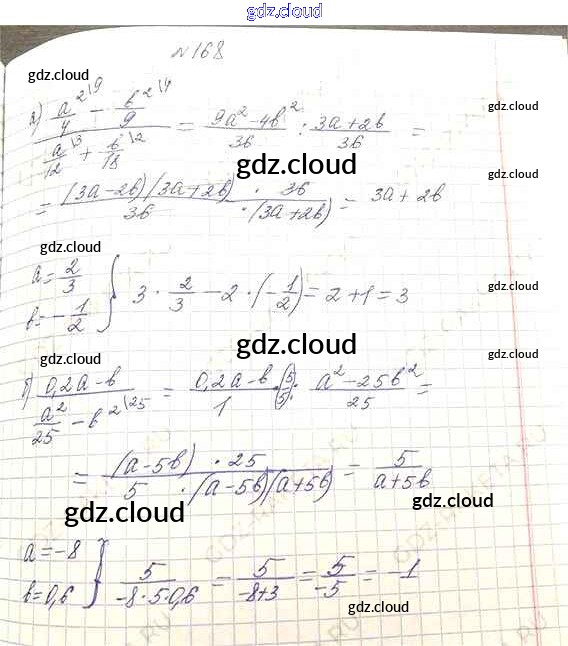 gdz.cloud
№168
gdz.cloud
а) (a²\9/4 - b²\4/9)/(a\3/12 + b\2/18) = (9a² - 4b²)/36 : (3a + 2b)/36 =
gdz.cloud
gdz.cloud
= (3a - 2b)(3a + 2b)/36 · 36/·(3a + 2b) = 3a + 2b
gdz.cloud
gdz.cloud
a = 2/3
b = -1/2 } 3 · 2/3 - 2 · (-1/2) = 2 + 1 = 3
gdz.cloud
gdz.cloud
gdz.cloud
б) (0,2a - b)/(a²/25 - b²\25) = (0,2a - b)/1 · (5/5) : (a² - 25b²)/25 =
= (a - 5b) · 25/5 · (a - 5b)(a + 5b) = 5/(a + 5b)
gdz.cloud
gdz.cloud
a = -8
b = 0,6 } 5/(-8 · 5 · 0,6) = 5/(-8 + 3) = 5/-5 = -1
gdz.cloud
gdz.cloud